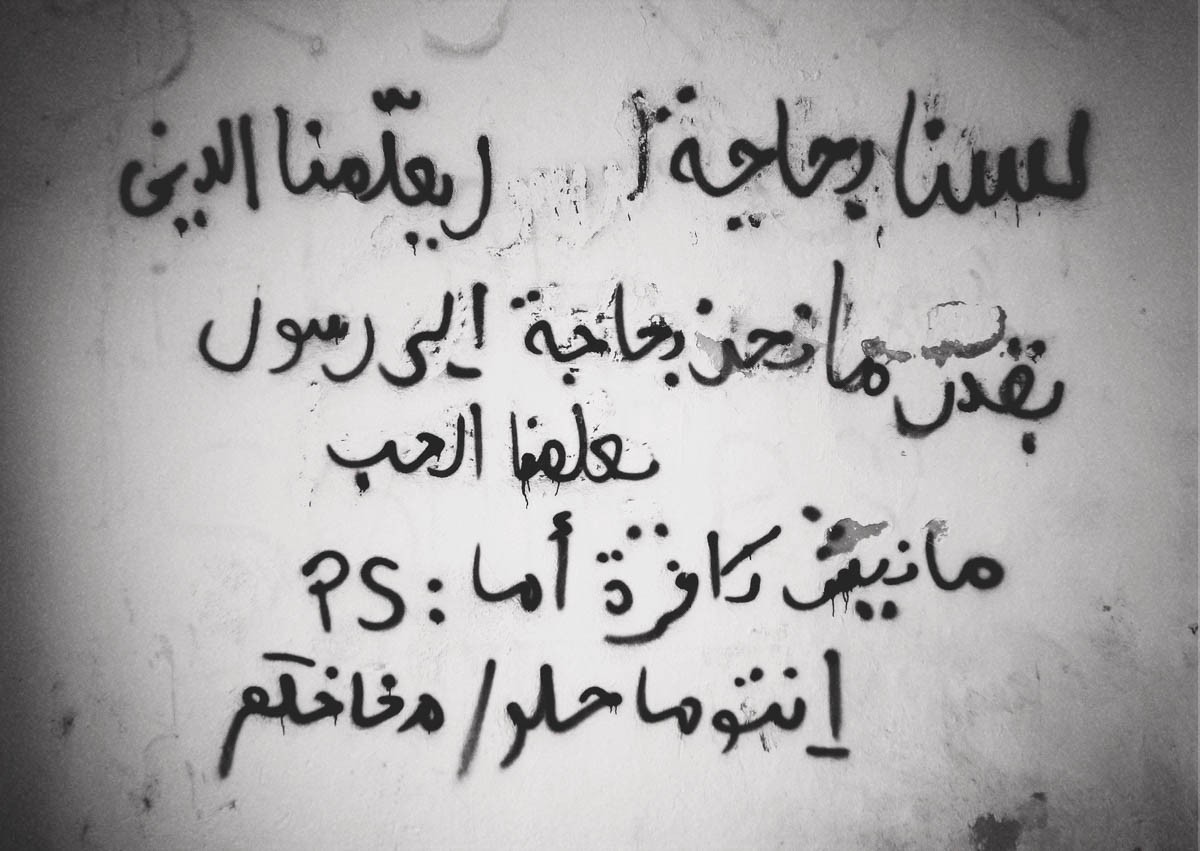 لسنا بحاجة ا ليعلّمنا الديني
بقدر ما نحن بحاجة إلى رسول
يعلمنا الحب
مانيش كافرة أما : PS
إنتوما حلو / مخاخكم